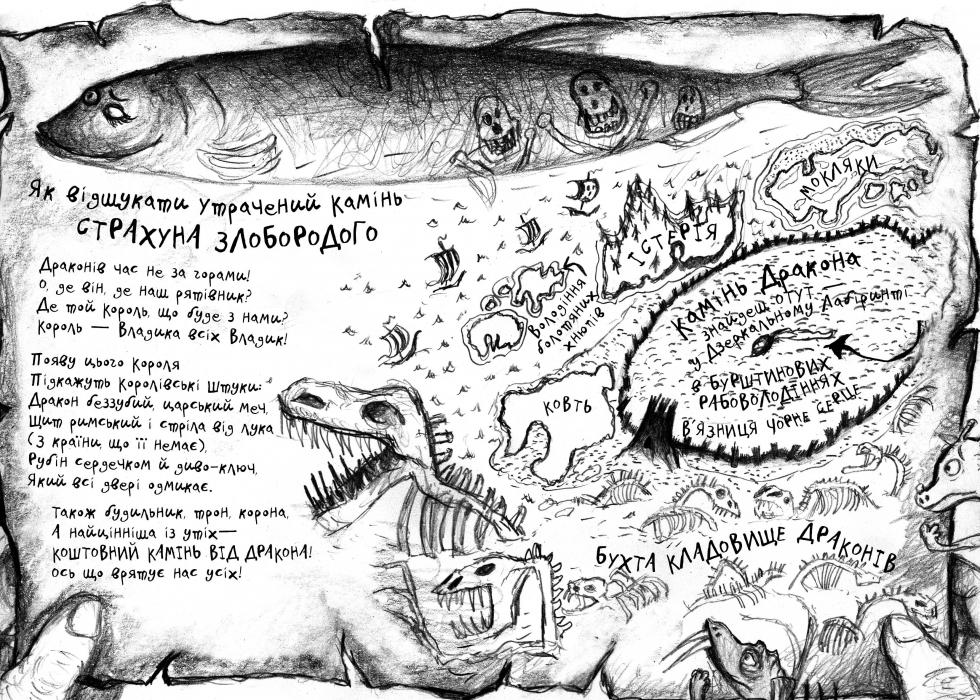 Як відшукати утрачений камінь
СТРАХУНА ЗЛОБОРОДОГО
Драконів час не за горами!
О, де він, де наш рятівник?
Де той король, що буде з нами?
Король — Владика всіх Владик!
Появу цього Короля
Підкажуть Королівські Штуки:
Дракон беззубий, царський меч,
Щит римський і стріла від лука
(З країни, що її немає),
Рубін сердечком й диво-ключ,
Який всі двері одмикає.
Також будильник, трон, корона,
А найцінніша із утіх—
КОШТОВНИЙ КАМІНЬ ВІД ДРАКОНА!
Ось що врятує нас усіх!
МОКЛЯКИ
ІСТЕРІЯ
Володіння
болотяних
хнюпів
КОВТЬ
Камінь Дракона
знайдеш отут —
у Дзеркальному Лабіринті
в БУРШТИНОВИХ
РАБОВОЛОДІННЯХ
В'ЯЗНИЦЯ ЧОРНЕ СЕРЦЕ
БУХТА КЛАДОВИЩЕ ДРАКОНІВ